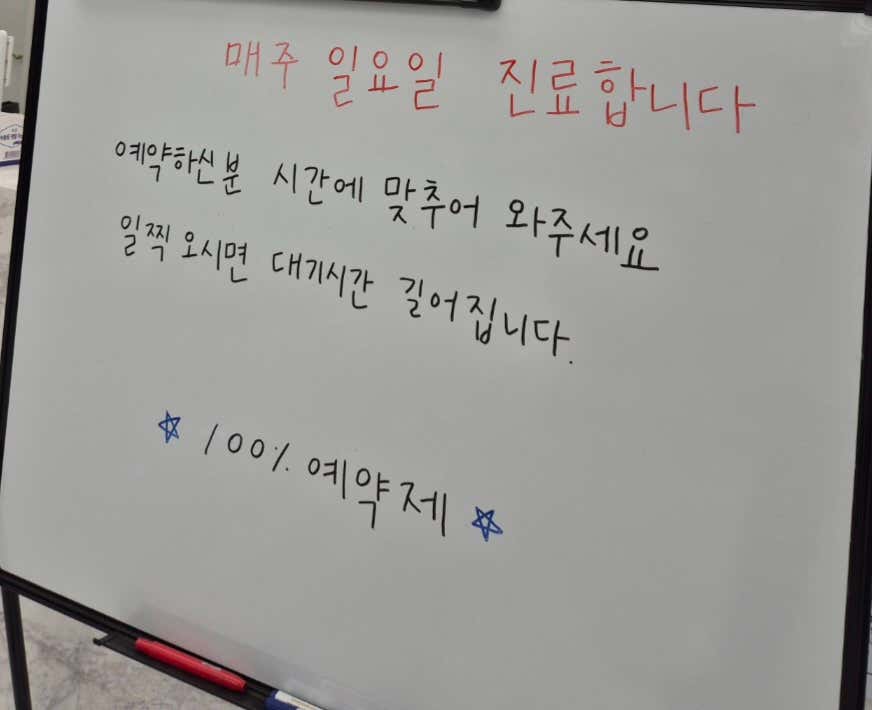 매주 일요일 진료합니다
예약하신분 시간에 맞추어 와주세요
일찍 오시면 대기시간 길어집니다.
☆ 100% 예약제 ☆